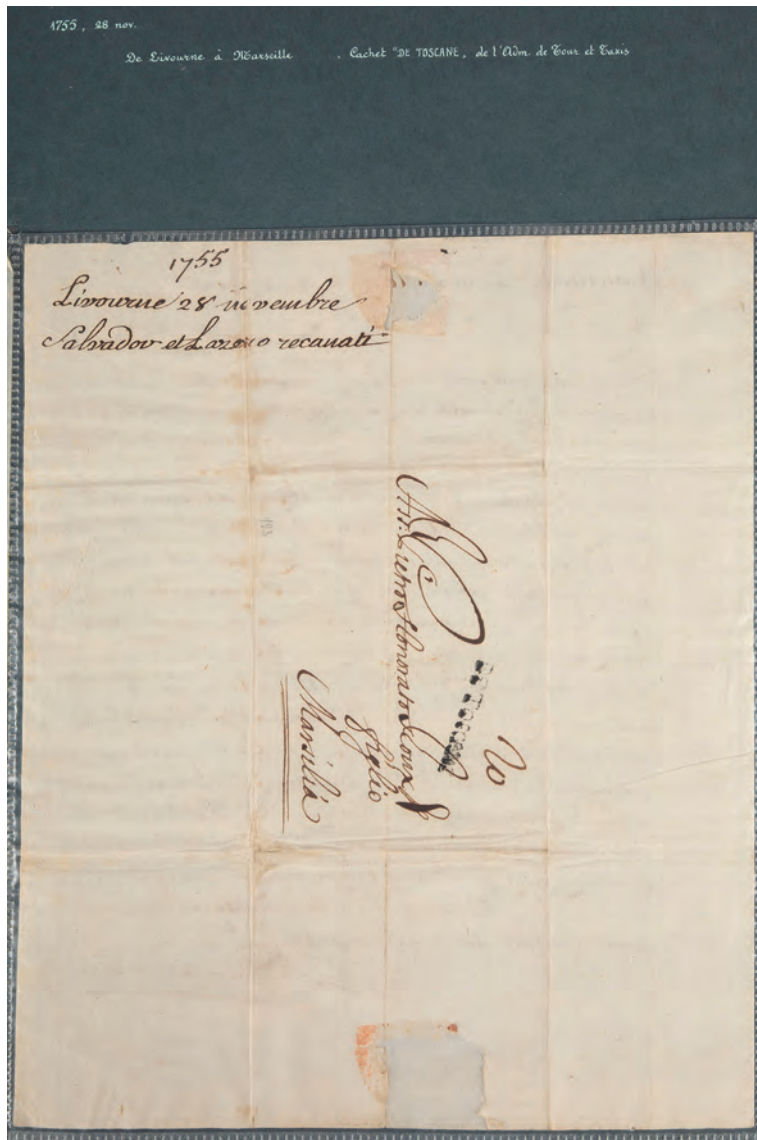 1755, 28 nov.
De Livourne à Marseille . Cachet "DE TOSCANE, de l'Adm. de Tour et Taxis
1755
Livourne 28 novembre
Salvador et Lazaro recanati
Pietro Honorato Roux &
figlio
Marsilia
DE TOSCANE
20
193